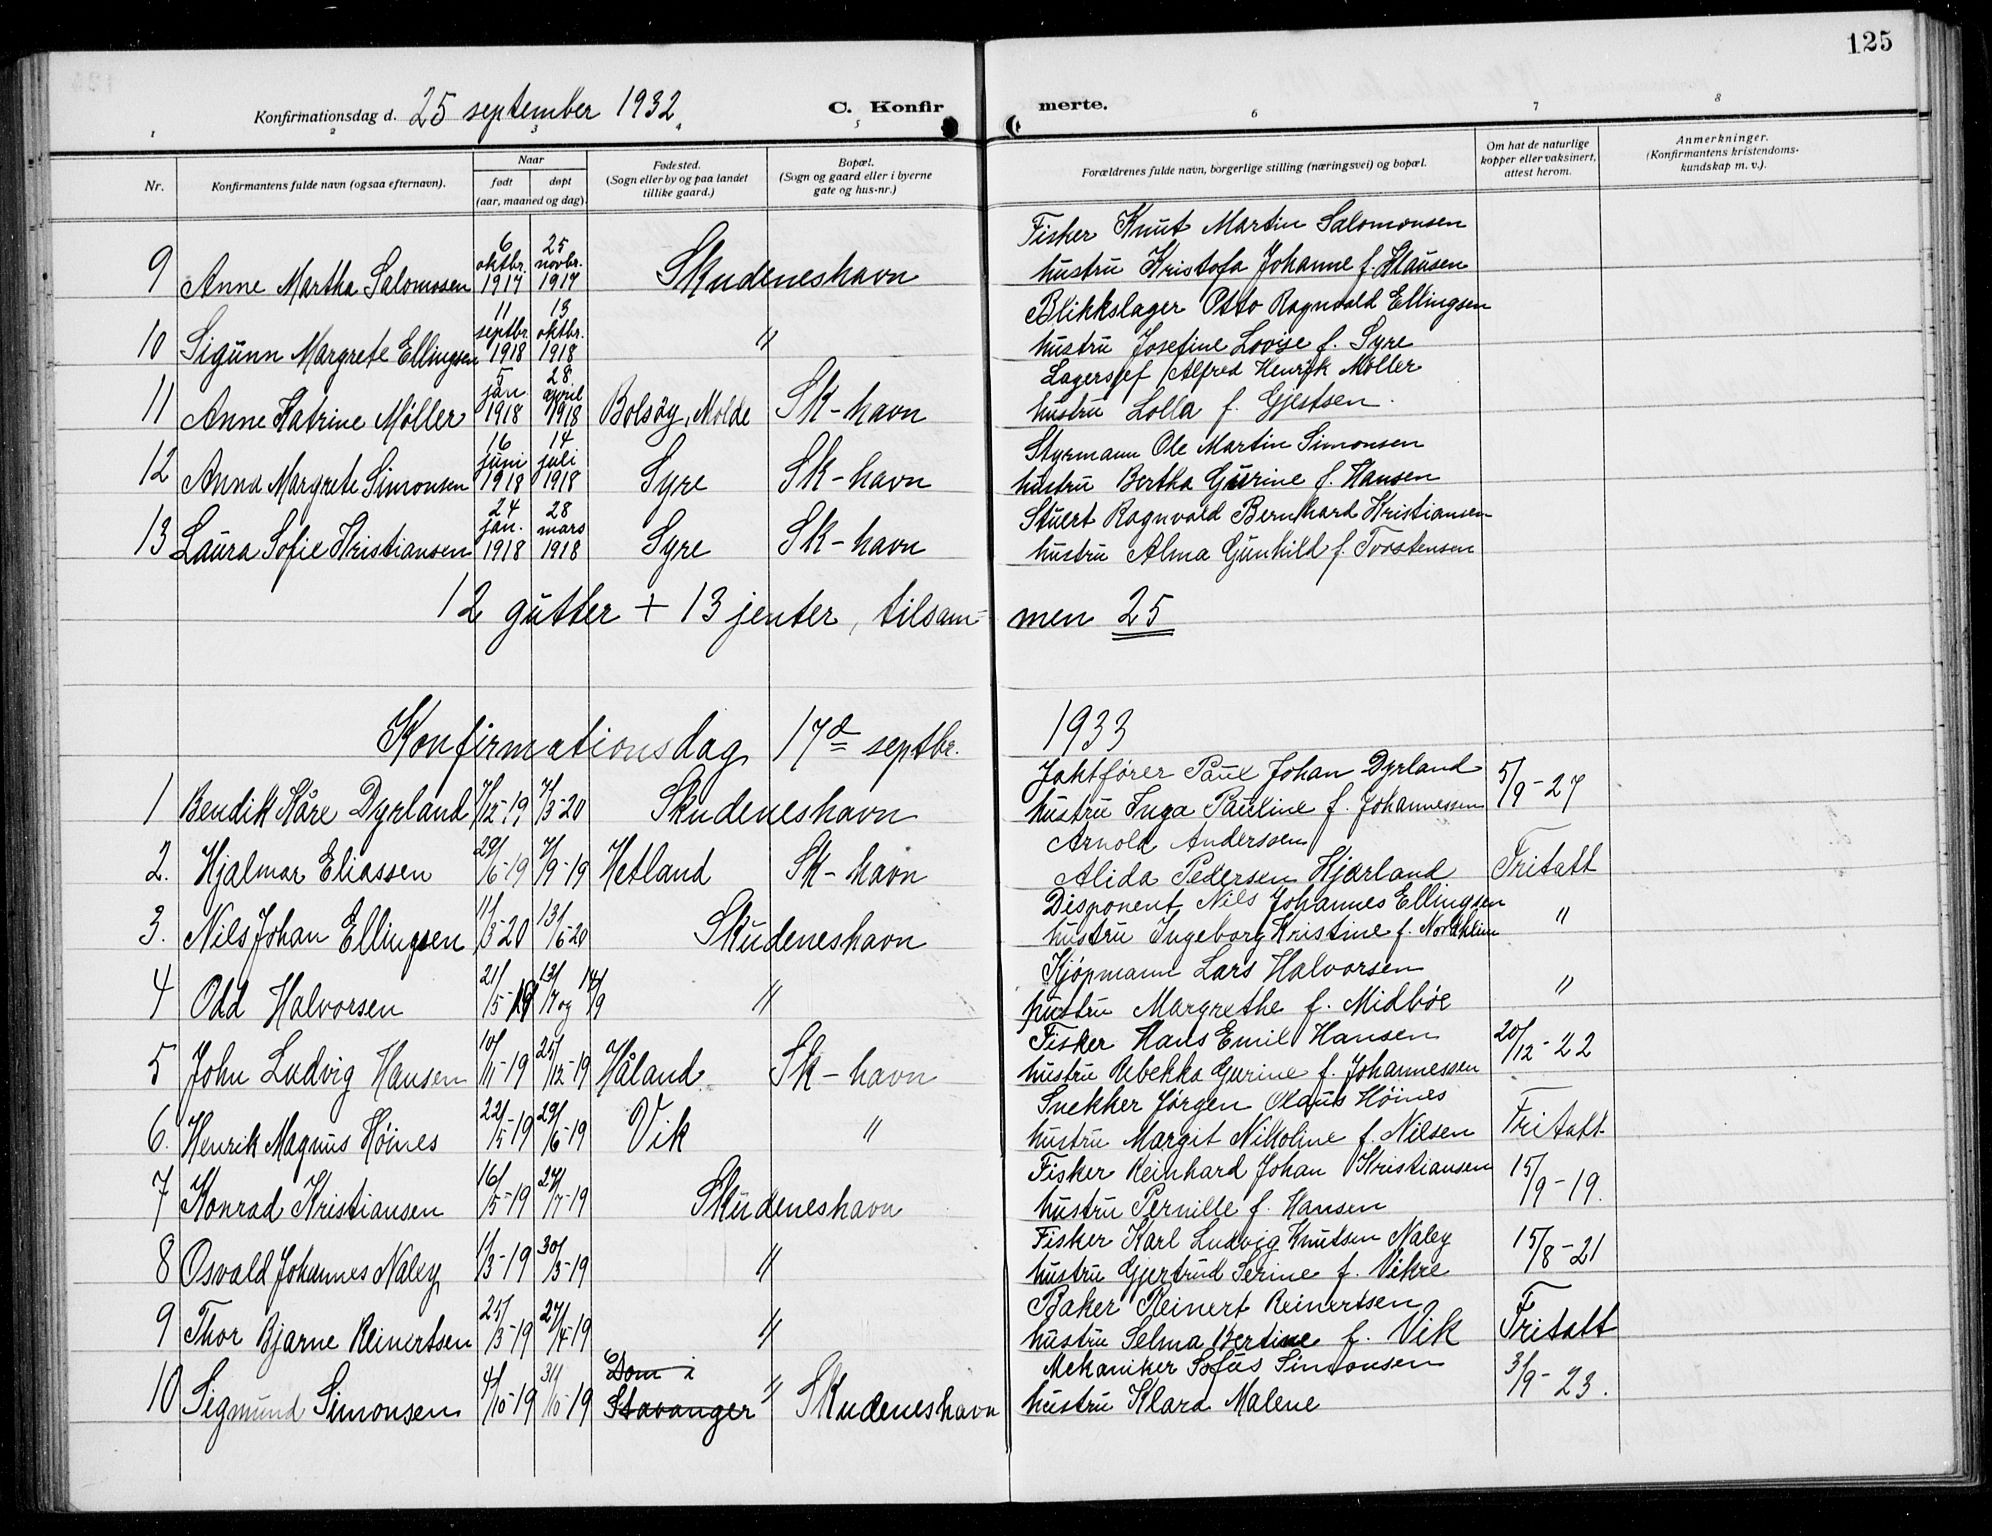 125
Konfirmationsdag d. 25 september 1932. C. Konfirmerte.
1 2 3 4 5 6 7 8
Nr. Konfirmantens fulde navn (ogsaa efternavn). Naar født døpt (aar, maaned og dag). Fødested. (Sogn eller by og paa landet tillike gaard.) Bopæl. (Sogn og gaard eller i byerne gate og hus-nr.) Forældrenes fulde navn, borgerlige stilling (næringsvei) og bopæl. Om hat de naturlige kopper eller vaksinert, attest herom. Anmerkninger. (Konfirmantens kristendomskundskap m. v.).
9 Anne Martha Salomosen 6 oktbr. 1917 25 novbr. 1917 Skudeneshavn Fisker Knut Martin Salomonsen
hustru Kristofa Johanne f. Klausen
10 Sigunn Margrete Ellingsen 11 septbr. 1918 13 oktbr. 1918 " Blikkslager Otto Ragnvald Ellingsen
hustru Josefine Lovise f. Syre
11 Anne Katrine Möller 5 jan 1918 28. april 1918 Bolsöy, Molde Sk-havn Lagersjef Alfred Henrik Möller
hustru Lolla f. Gjestsen.
12 Anna Margrete Simonsen 16 juni 1918 14 juli 1918 Syre Sk-havn Styrmann Ole Martin Simonsen
hustru Bertha Gurine f. Hansen
13 Laura Sofie Kristiansen 24 jan. 1918 28 mars 1918 Syre Sk-havn Stuert Ragnvald Bernhard Kristiansen
hustru Alma Gunhild f. Torstensen
12 gutter + 13 jenter, tilsammen 25
Konfirmationsdag 17d septbr. 1933
1 Bendik Kåre Dyrland 7/12-19 7/3-20 Skudeneshavn Jaktfører Paul Johan Dyrland 5/9-27
hustru Inga Pauline f. Johannessen
2. Hjalmar Eliassen 29/6-19 7/9-19 Hetland Sk-havn Arnold Anderssen
Alida Pedersen Kjærland Fritatt
3. Nils Johan Ellingsen 11/3-20 13/6-20 Skudeneshavn Disponent Nils Johannes Ellingsen "
hustru Ingeborg Kristine f. Nordhleim
4 Odd Halvorsen 21/5-19 13/7 og 14/9 " Kjöpmann Lars Halvorsen "
hustru Margrethe f. Midböe
5 John Ludvig Hansen 10/11-19 25/12-19 Håland Sk-havn Fisker Hans Emil Hansen 20/12-22
hustru Rebekka Gurine f. Johannessen
6. Henrik Magnus Höines 22/5-19 29/6-19 Vik " Snekker Jørgen Olaus Höines Fritatt
hustru Margit Nikoline f. Nilsen
7 Konrad Kristiansen 16/5-19 27/7-19 Skudeneshavn Fisker Reinhard Johan Kristiansen 15/9-19.
hustru Pernille f. Hansen
8 Osvald Johannes Naley 1/3-19 30/3-19 " Fisker Karl Ludvig Knutsen Naley 15/8-21
hustru Gjertrud Serine f. Vikre
9 Thor Bjarne Reinertsen 25/3-19 27/4-19 " Baker Reinert Reinertsen Fritatt
hustru Selma Bertine f. Vik
10 Sigmund Simonsen 4/10-19 31/10-19 Dom i Stavanger " Skudeneshavn Mekaniker Sofus Simonsen 3/9-23.
hustru Klara Malene